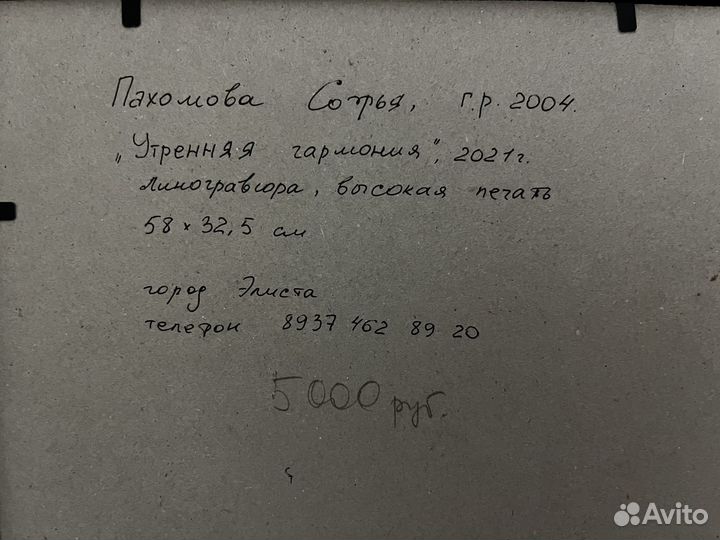 Пахомова Софья, г.р. 2004.
„Утренняя гармония", 2021г.
линогравюра, высокая печать
58 × 32,5 см
город Элиста
телефон 8937 462 89 20
5 000 руб.
Avito